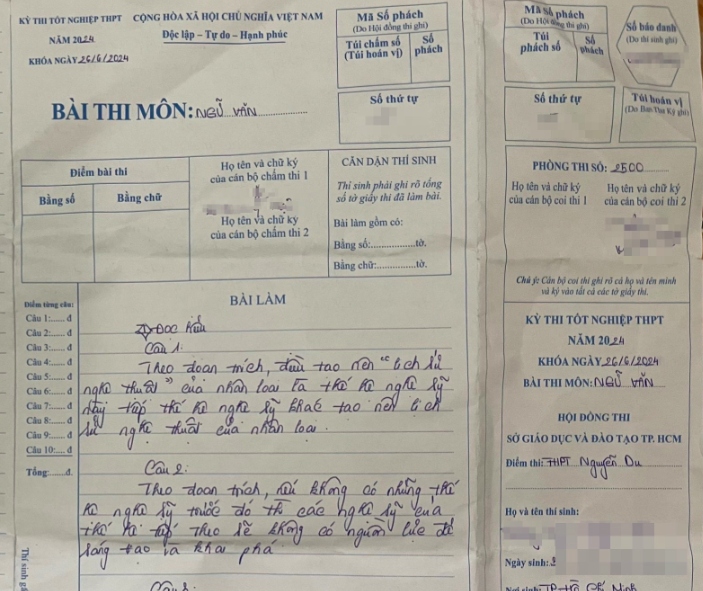 KỲ THI TỐT NGHIỆP THPT
NĂM 2024
KHÓA NGÀY 26/6/2024
CỘNG HÒA XÃ HỘI CHỦ NGHĨA VIỆT NAM
Độc lập - Tự do - Hạnh phúc
BÀI THI MÔN: NGỮ VĂN
Mã Số phách
(Do Hội đồng thi ghi)
Túi chấm số
(Túi hoán vị)
Số
phách
Số thứ tự
Điểm bài thi
Bằng số
Bằng chữ
Họ tên và chữ ký
của cán bộ chấm thi 1
Họ tên và chữ ký
của cán bộ chấm thi 2
CĂN DẶN THÍ SINH
Thí sinh phải ghi rõ tổng
số tờ giấy thi đã làm bài.
Bài làm gồm có:
Bằng số:................tờ.
Bằng chữ:...............tờ.
Điểm từng câu:
Câu 1:...... đ
Câu 2:...... đ
Câu 3:...... đ
Câu 4:...... đ
Câu 5:...... đ
Câu 6:...... đ
Câu 7:...... đ
Câu 8:...... đ
Câu 9:...... đ
Câu 10:.... đ
Tổng:......đ.
BÀI LÀM
I) Đọc hiểu
Câu 1:
Theo đoạn trích, điều tạo nên "lịch sử
nghệ thuật" của nhân loại là thế hệ nghệ sỹ
này tiếp thế hệ nghệ sỹ khác tạo nên lịch
sử nghệ thuật của nhân loại.
Câu 2:
Theo đoạn trích, nếu không có những thế
hệ nghệ sỹ trước đó thì các nghệ sỹ của
thế hệ tiếp theo sẽ không có nguồn lực để
sáng tạo và khai phá.
Câu 3:
Thí sinh
Mã Số phách
(Do Hội đồng thi ghi)
Túi
phách số
Số
phách
Số báo danh
(Do thí sinh ghi)
Số thứ tự
Túi hoán vị
(Do Ban Thư Ký ghi)
PHÒNG THI SỐ: 2500
Họ tên và chữ ký
của cán bộ coi thi 1
Họ tên và chữ ký
của cán bộ coi thi 2
Chú ý: Cán bộ coi thi ghi rõ cả họ và tên mình
và ký vào tất cả các tờ giấy thi.
KỲ THI TỐT NGHIỆP THPT
NĂM 2024
KHÓA NGÀY 26/6/2024
BÀI THI MÔN: NGỮ VĂN
HỘI ĐỒNG THI
SỞ GIÁO DỤC VÀ ĐÀO TẠO TP. HCM
Điểm thi: THPT Nguyễn Du
Họ và tên thí sinh:
Ngày sinh:
Nơi sinh: TP. Hồ Chí Minh